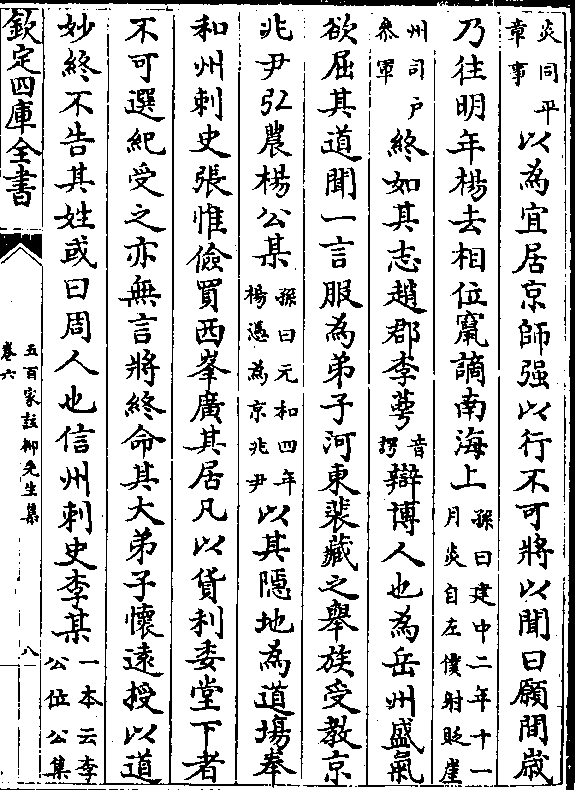 炎同平
章事
以為宜居京師强以行不可將以聞曰願間歳
乃往明年楊去相位竄謫南海上
孫曰建中二年十一
月炎自左僕射貶崖
州司户
參軍
終如其志趙郡李蕚
音
諤
辯博人也為岳州盛氣
欲屈其道聞一言服為弟子河東裴藏之舉族受教京
兆尹弘農楊公某
孫曰元和四年
楊憑為京兆尹
以其隱地為道塲奉
和州刺史張惟儉買西峯廣其居凡以貨利委堂下者
不可選紀受之亦無言將終命其大弟子懷逺授以道
妙終不告其姓或曰周人也信州刺史李某
一本云李
公位公集
欽定四庫全書
五百家註柳先生集
卷六
八